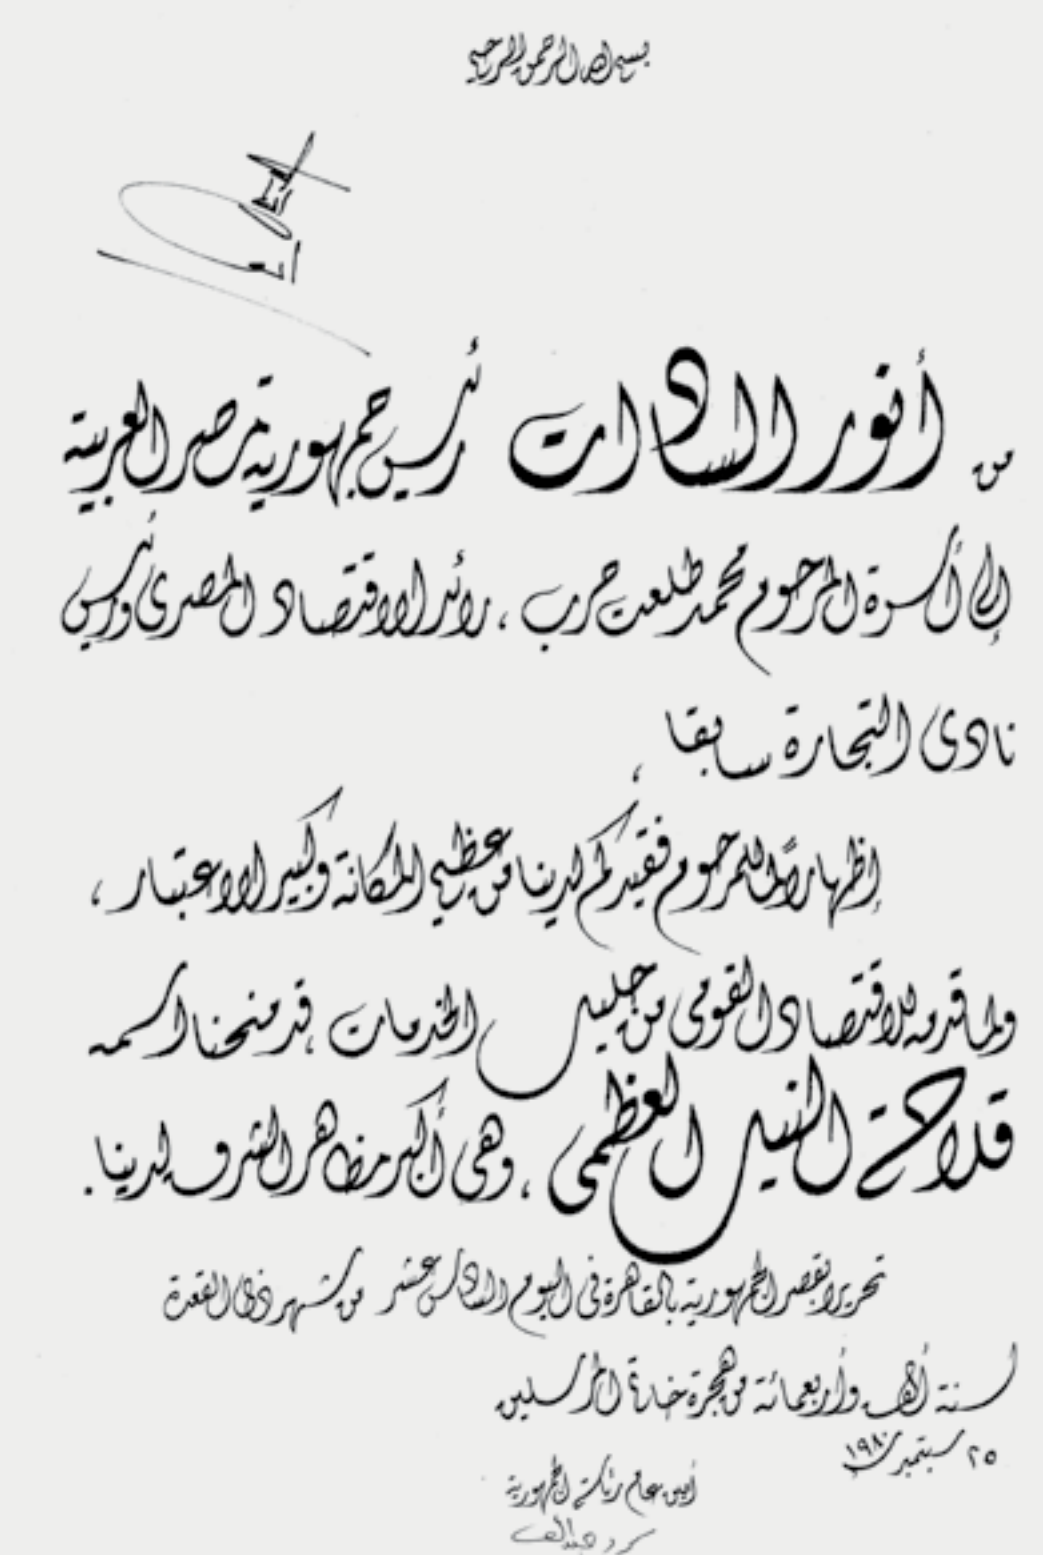 بسم الله الرحمن الرحيم
من أنور السادات رئيس جمهورية مصر العربية
إلى أسرة المرحوم محمد طلعت حرب ، رائد الاقتصاد المصرى ورئيس
نادى التجارة سابقا ،
إظهاراً للمرحوم فقيدكم لدينا من عظيم المكانة وكبير الاعتبار ،
ولما قدمه للاقتصاد القومى من جليل الخدمات ، قد منحنا اسمه
قلادة النيل العظمى ، وهى أكبر مظاهر الشرف لدينا .
تحريرا بقصر الجمهورية بالقاهرة فى اليوم السادس عشر من شهر ذى القعدة
لسنة ألف وأربعمائة من هجرة خاتم المرسلين
٢٥ سبتمبر ١٩٨٠
أمين عام رئاسة الجمهورية